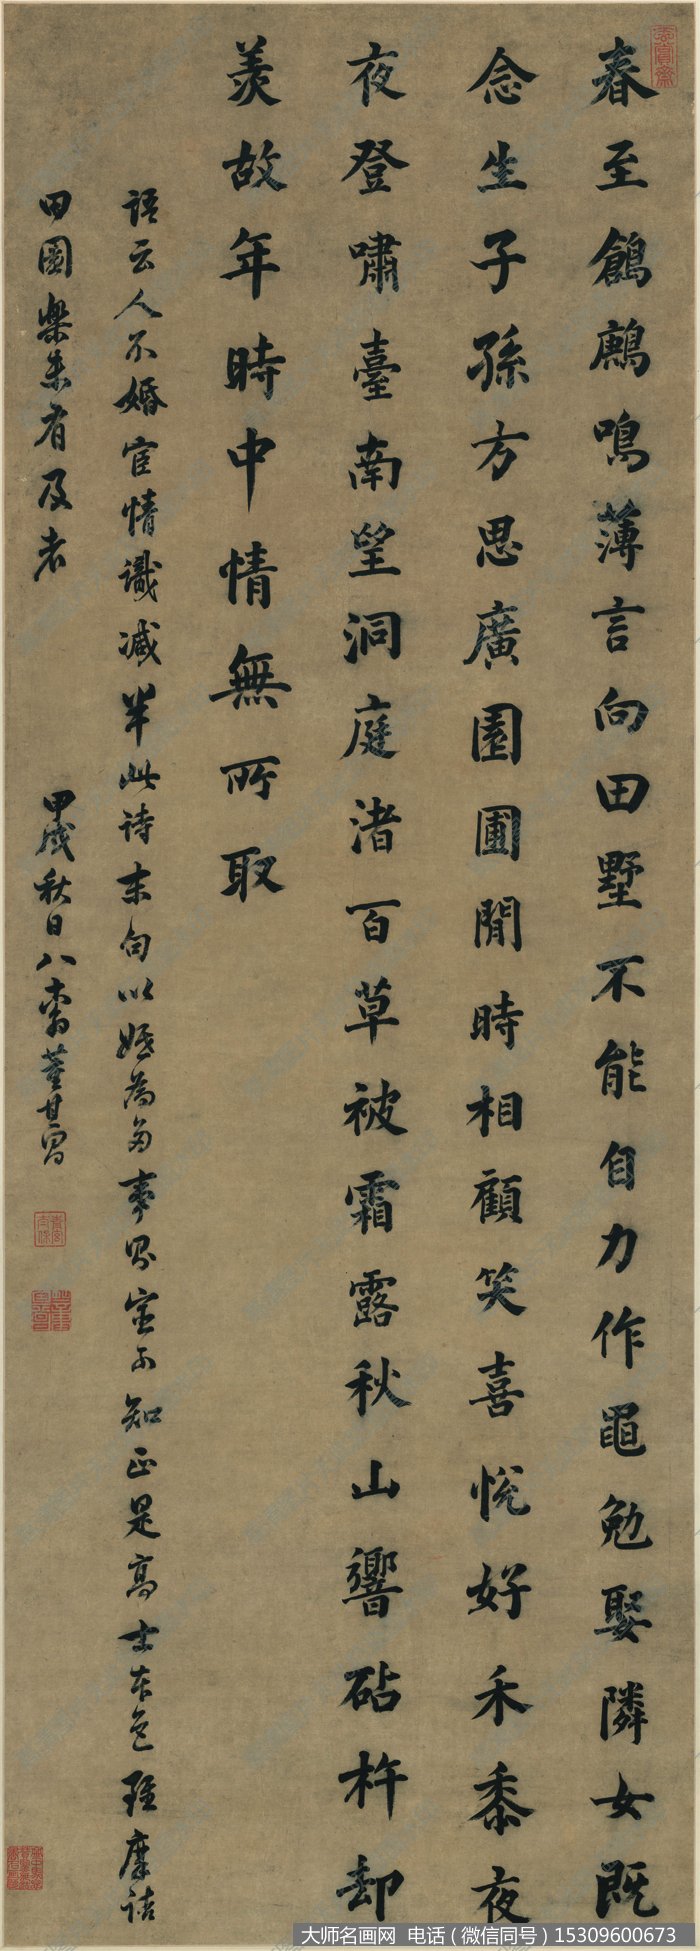 玄賞齋
春至鶬鶊鳴薄言向田墅不能自力作黽勉娶隣女既
念生子孫方思廣園圃閒時相顧笑喜悅好禾黍夜
夜登嘯臺南望洞庭渚百草被霜露秋山響砧杵却
羨故年時中情無所取
語云人不婚宦情識減半此詩末句以婚為多事不知正是高士本色雖摩詰
田園樂未有及者
甲戌秋日八十翁董其昌
大师名画网 电话（微信同号）15309600673